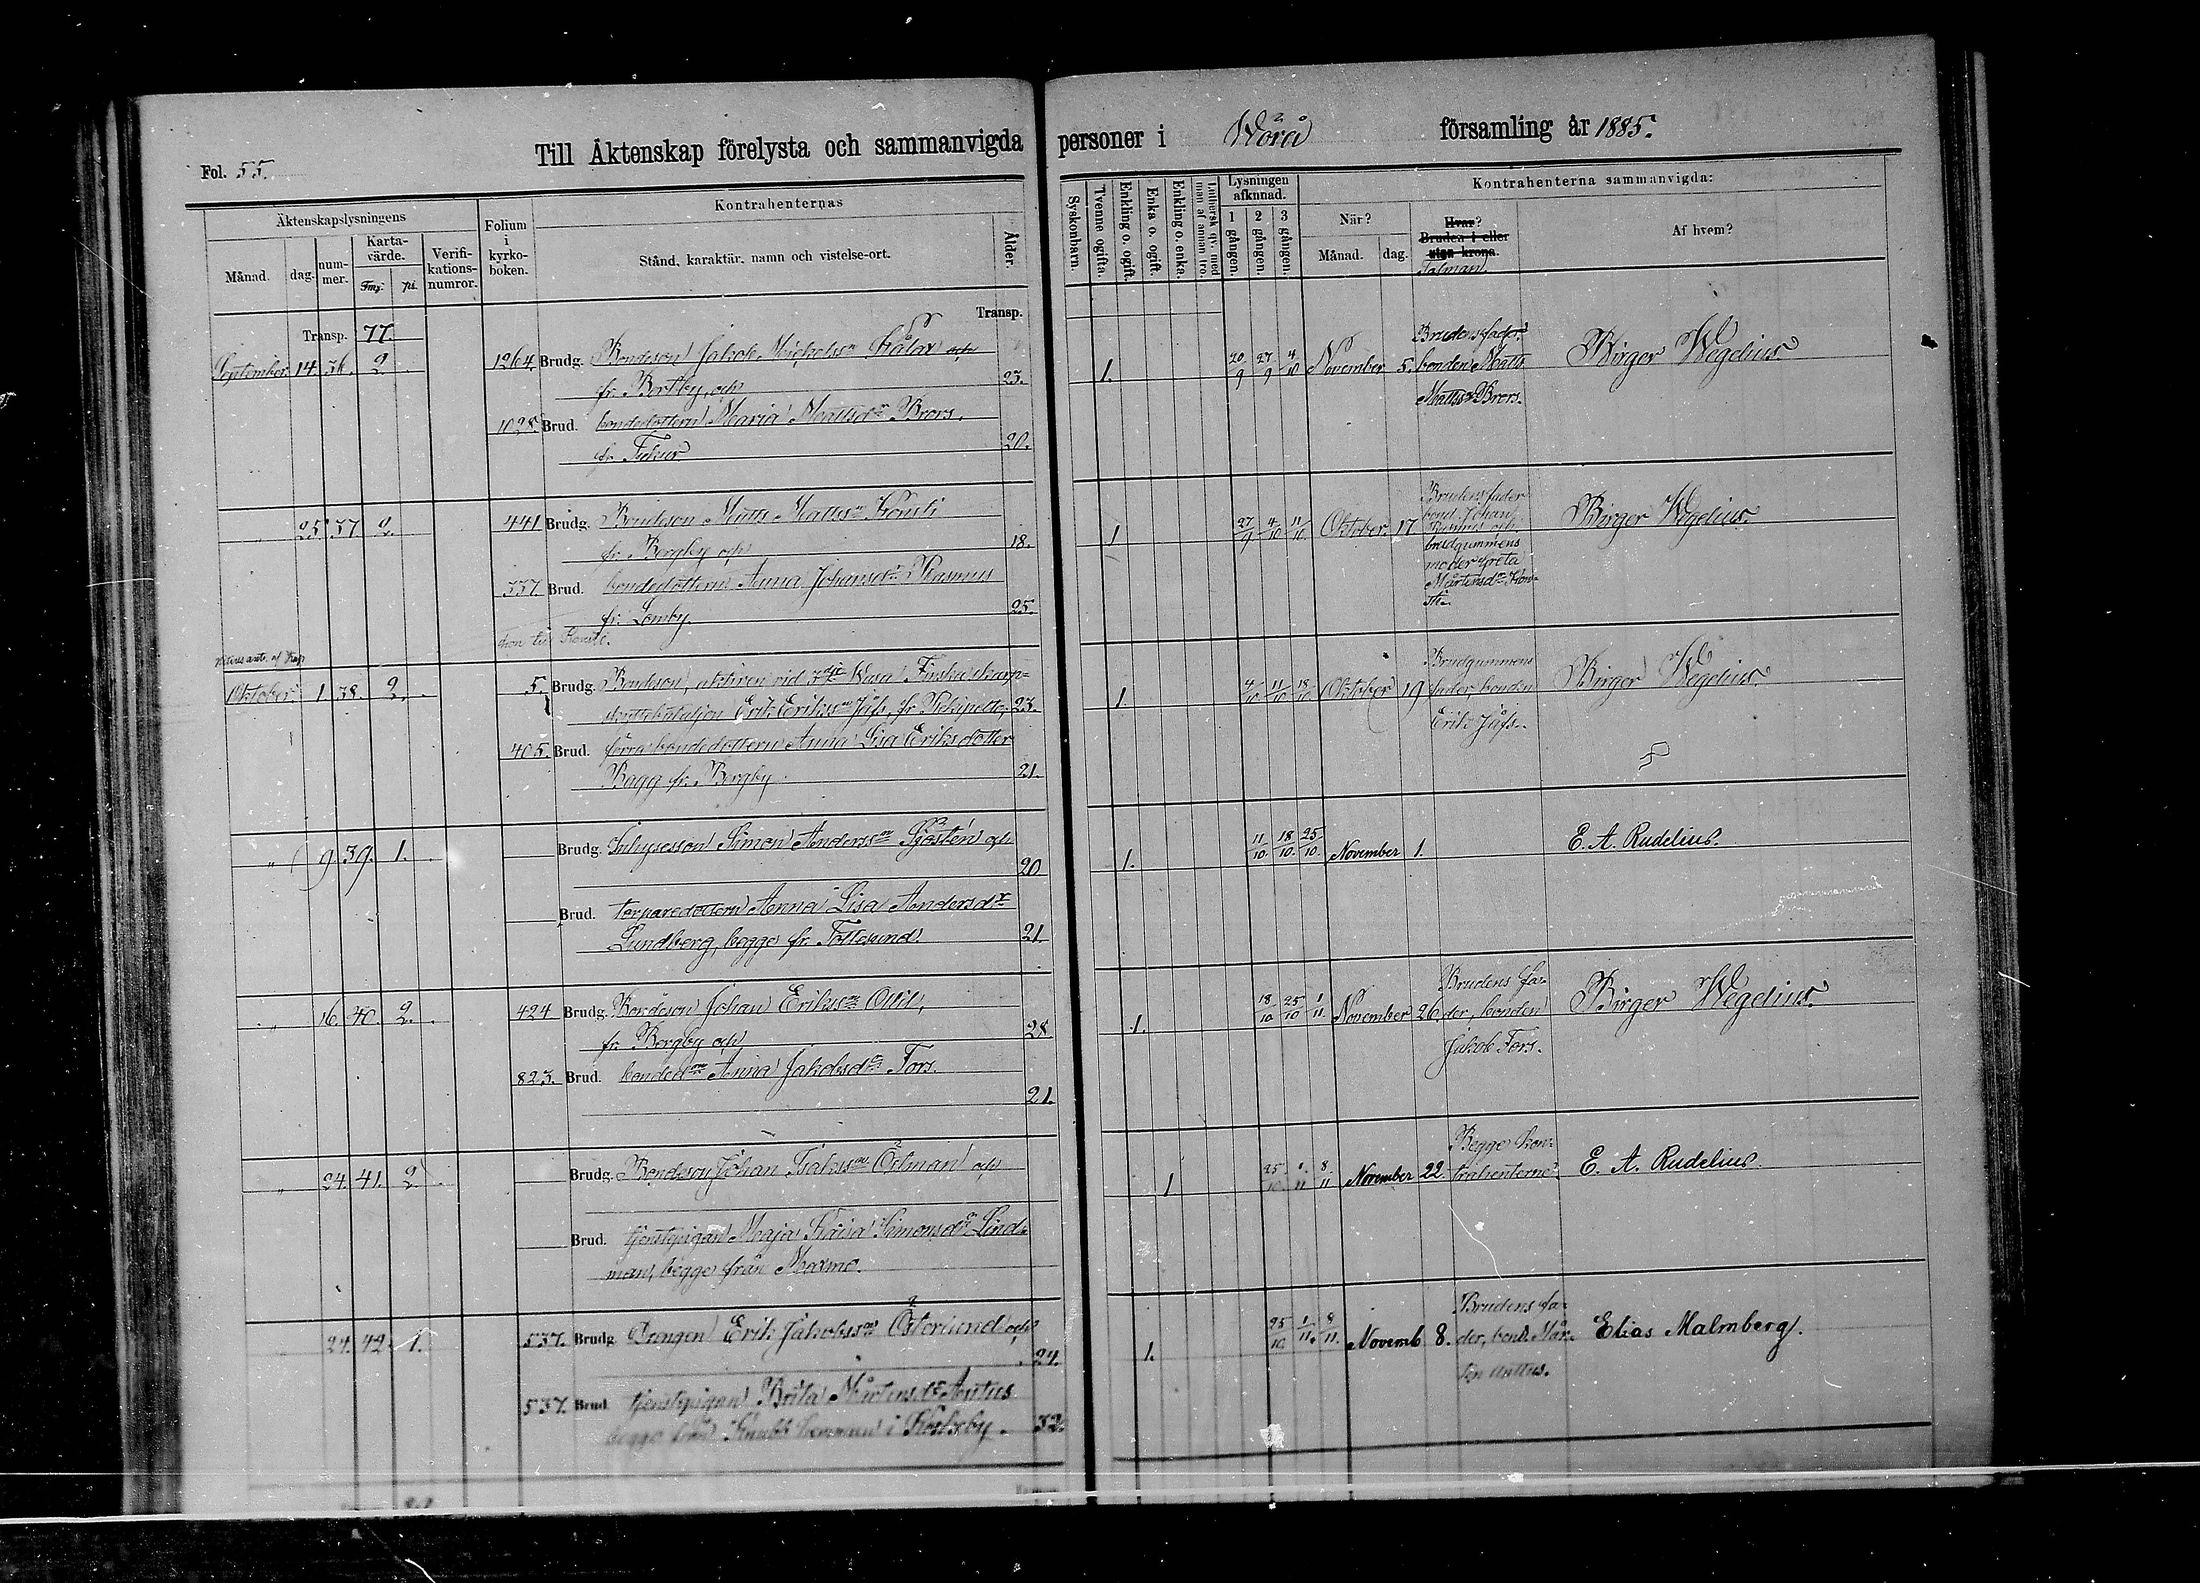 Fol. 55.
Till Äktenskap förelysta och sammanvigda personer i Wörå församling år 1885.
Äktenskapslysningens
Månad.
dag.
nummer.
Karta-
värde.
Fmg:
pi.
Verifi-
kations-
numror.
Folium
i
kyrko-
boken.
Kontrahenternas
Stånd, karaktär, namn och vistelse-ort.
Ålder.
Syskonbarn.
Tvenne ogifta.
Enkling o. ogift.
Enka o. ogift.
Enkling o. enka.
Luthersk qv. med
man af annan tro.
Lysningen
afkunnad.
1 gången.
2 gången.
3 gången.
Kontrahenterna sammanvigda:
När?
Månad.
dag.
Hvar?
Bruden i eller
utan krona.
Talman.
Af hvem?
Transp. 77.
Transp.
September 14. 36. 2. 1264. Brudg. Bondeson Jakob Michelsn och
fr. Bertby, och 23.
1028. Brud. bondedottern Maria Mattsdr Brors.
fr. 20.
1. 20/9 27/9 4/10 November 5.
Brudens fader
bonden Matts
Mattsn Brors.
Birger Wegelius
" 25 37 2. 441 Brudg. Bondeson Matts Mattsn
fr. Bergby och 18.
337. Brud. bondedottern Anna Johansdr Rasmus
fr. Lomby 25.
1 27/9 4/10 11/10 Oktober 17
Brudens fader
bond. Johan
Rasmus och
brudgummens
moder Greta
Mårtensdr
Birger Wegelius.
Oktober 1. 38. 2. 5. Brudg. Bondeson, aktiven vid Wasa Finska skarp-
skyttebataljon Erik Eriksn Jåfs, fr. 23.
405. Brud. förra bondedottern Anna Lisa Eriksdotter
Bagg fr. Bergby. 21.
1. 4/10 11/10 18/10 Oktober 19
Brudgummens
fader, bonden
Erik Jåfs.
Birger Wegelius.
" 9. 39. 1. Brudg. Inhysesson Simon Andersson Sjöstén och
20
Brud. torparedottern Anna Lisa Andersdr
Lundberg, begge fr. Tottesund. 21.
1. 11/10. 18/10. 25/10. November 1.
E. A. Rudelius.
" 16. 40. 2. 424 Brudg. Bondeson Johan Eriksson
fr. Bergby och 28
823. Brud. Anna Jakobsdr Fors.
21.
1. 18/10 25/10 1/11. November 26.
Brudens fa-
der, bonden
Jakob Fors.
Birger Wegelius.
" 24. 41. 2. Brudg. Bondeson Johan Östman och
Brud. tjenstepigan Maja Simonsdr Lind-
man, begge från Maxmo.
1 25/10. 1/11 8/11 November 22.
Begge kon-
trahenterne.
E. A. Rudelius.
24. 42. 1. 537. Brudg. Drengen Erik Jakobsson Österlund och
24.
537. Brud. tjenstepigan Brita Mårtensdr Anttus
begge från i 32.
1. 25/10. 1/11. 8/11. Novemb 8.
Brudens fa-
der, bond. Mår-
ten Anttus.
Elias Malmberg.